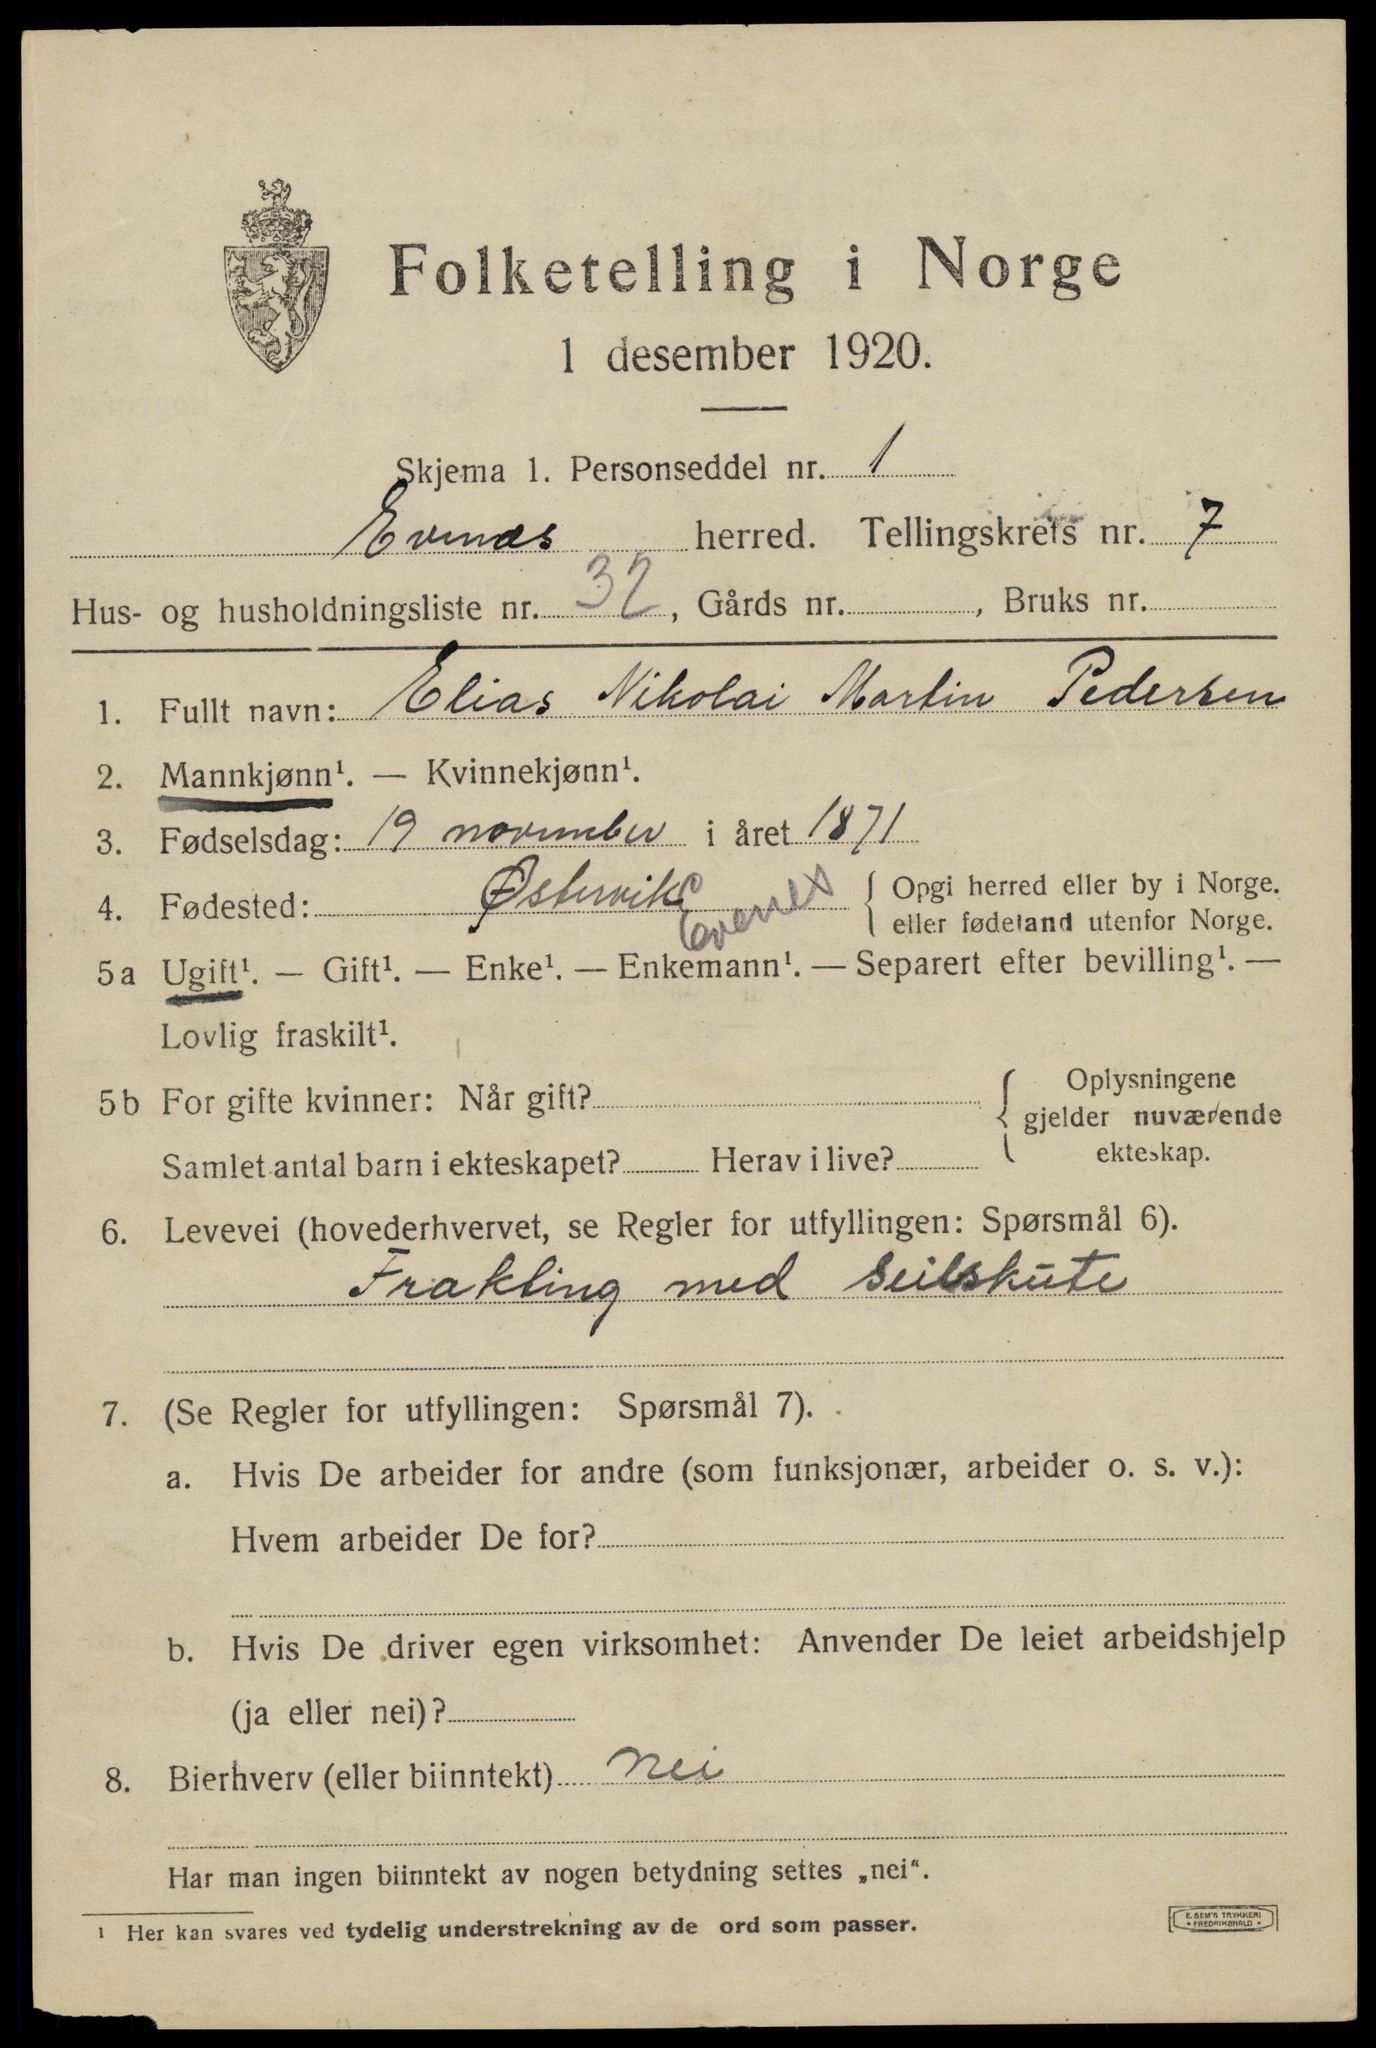 Folketelling i Norge
1 desember 1920.
Skjema 1. Personseddel nr. 1
Evenæs herred. Tellingskrets nr. 7
Hus- og husholdningsliste nr. 32, Gårds nr. , Bruks nr.
1. Fullt navn: Elias Nikolai Martin Pedersen
2. Mannkjønn¹. — Kvinnekjønn¹.
3. Fødselsdag: 19 november i året 1871
4. Fødested: Østervik Evenes { Opgi herred eller by i Norge.
eller fødeland utenfor Norge.
5a Ugift¹. — Gift¹. — Enke¹. — Enkemann¹. — Separert efter bevilling¹. —
Lovlig fraskilt¹.
5b For gifte kvinner: Når gift? { Oplysningene
gjelder nuværende
ekteskap.
Samlet antal barn i ekteskapet? Herav i live?
6. Levevei (hovederhvervet, se Regler for utfyllingen: Spørsmål 6).
Frakting med seilskute
7. (Se Regler for utfyllingen: Spørsmål 7).
a. Hvis De arbeider for andre (som funksjonær, arbeider o. s. v.):
Hvem arbeider De for?
b. Hvis De driver egen virksomhet: Anvender De leiet arbeidshjelp
(ja eller nei)?
8. Bierhverv (eller biinntekt) nei
Har man ingen biinntekt av nogen betydning settes „nei“.
1 Her kan svares ved tydelig understrekning av de ord som passer.
E. SEM'S TRYKKERI
FREDRIKSHALD